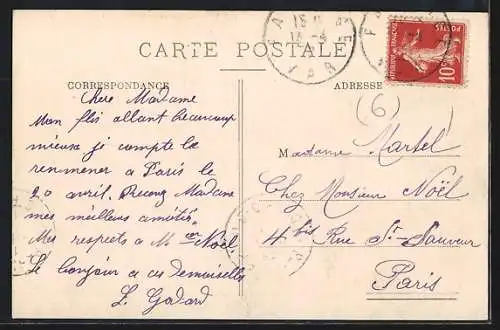 CARTE POSTALE
CORRESPONDANCE
ADRESSE
POSTES
10
VAR
(6)
Chere Madame
Mon fils allant beaucoup
mieux je compte le
renmener a Paris le
20 avril. Recevez Madame
mes meilleurs amitiés.
Mes respects a Mr Noël,
Le bonjour a ces demoiselles
L. Godard
Madame Martel
Chez Monsieur Noël
4 bis Rue St-Sauveur
Paris